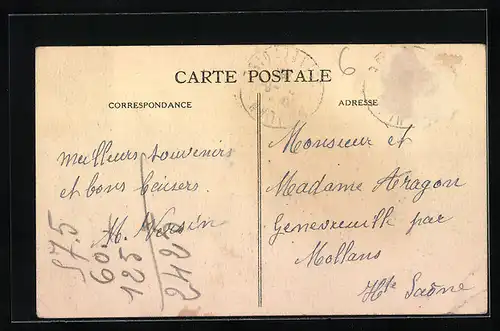 CARTE POSTALE
CORRESPONDANCE
ADRESSE
Meilleurs souvenirs
et bons baisers.
H. Versin
57.5
60.
125
242
Monsieur et
Madame Aragon
Genevreuille par
Mollans
Hte Saône
6